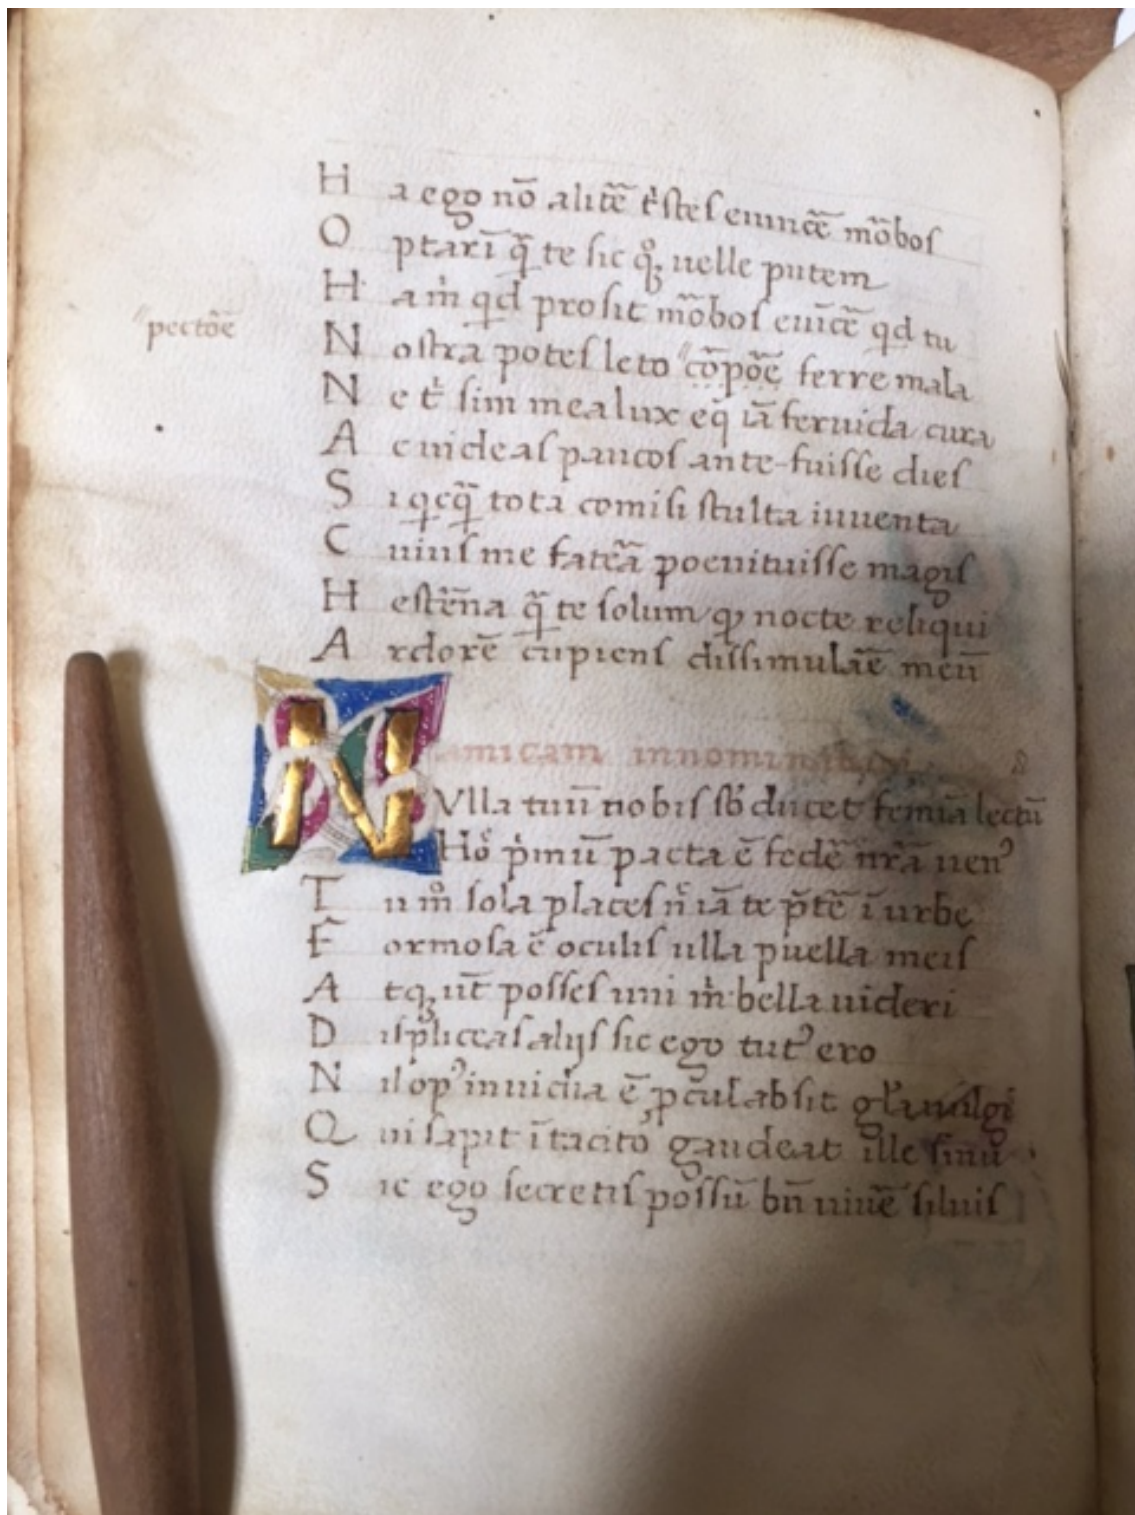 H a ego nō alit̄e tͥstes euinc̄e mōbos
O ptarī q̄ te sic qͦꝫ uelle putem
H am̍ qd prosit mōbos euīc̄e qd tu
pectōē
N ostra potes leto cōpōē ferre mala
N e tͥ sim mea lux eq̄ iā feruida cura
A c uideas paucos ante fuisse dies
S i qcq̄ tota comisi stulta iuuenta
C uius me fateā poenituisse magis
H estēna q̄ te solum ꝙ nocte reliqui
A rdorē cupiens dissimulāē meū
amicam innominatam 8
NVlla tuū nobis sb̄ ducet femīa lectū
Hoͦ pͥmū pacta ē fedē nr̄a uenꝰ
T u mͦ sola places nͨ iā te pt̄ē ī urbe
F ormosa ē oculis ulla puella meis
A tqꝫ ut̄ posses uni m̍ bella uideri
D ispliceas alijs sic ego tutꝰ ero
N il opꝰ inuidia ē pcul absit gl̄a uulgi
Q ui sapit ī tacito gaudeat ille sinu
S ic ego secretis possū bn̄ uiuē siluis